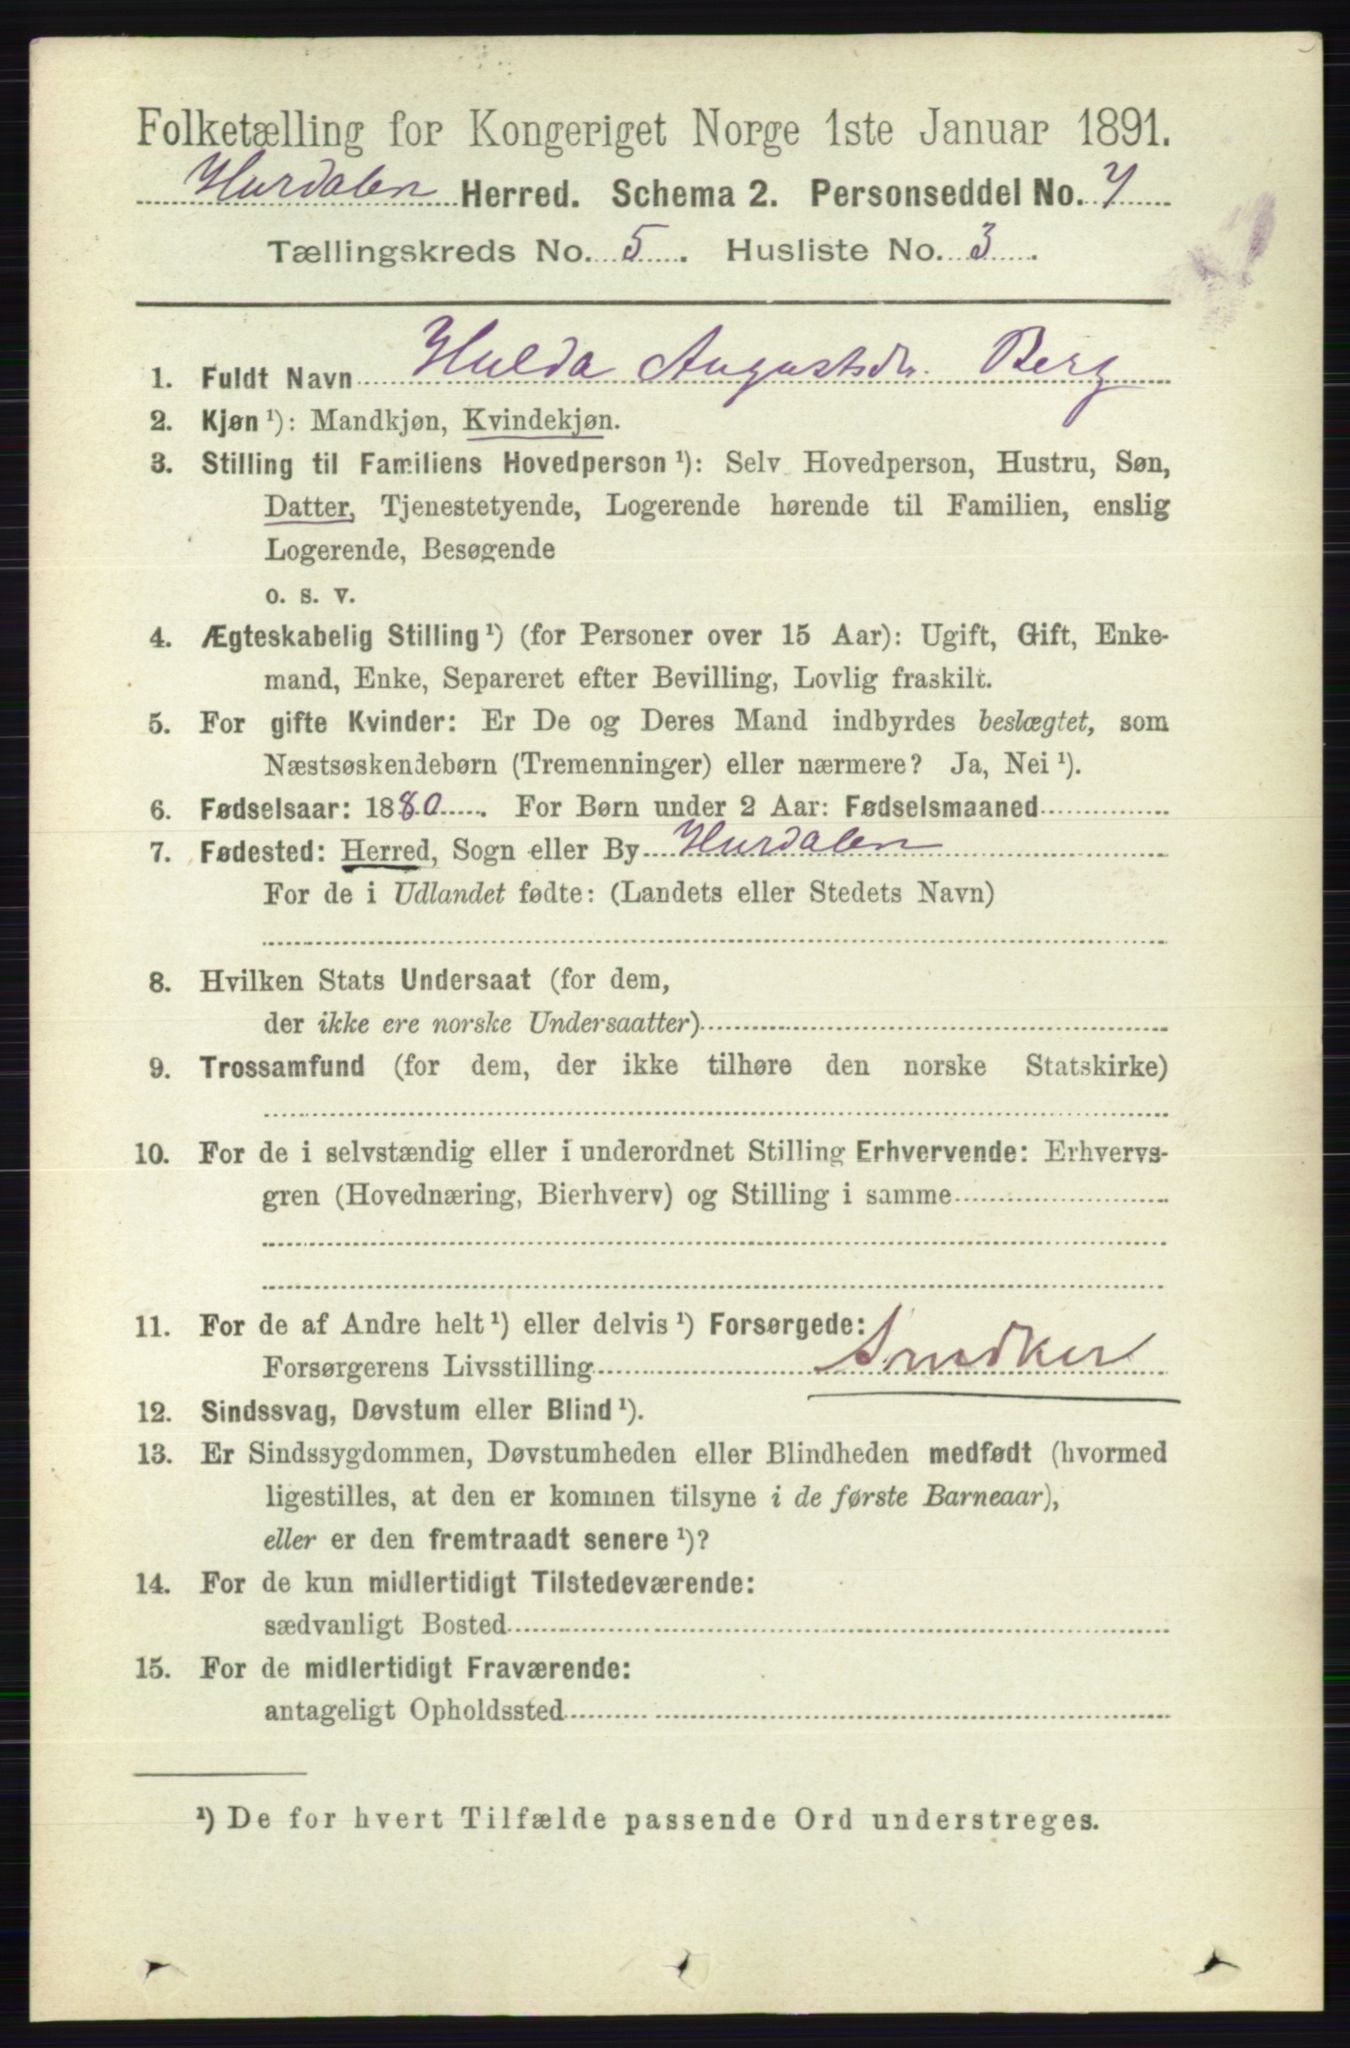 Folketælling for Kongeriget Norge 1ste Januar 1891.
Hurdalen Herred. Schema 2. Personseddel No. 7
Tællingskreds No. 5. Husliste No. 3.
1. Fuldt Navn Hulda Augustsdr. Berg
2. Kjøn ¹): Mandkjøn, Kvindekjøn.
3. Stilling til Familiens Hovedperson ¹): Selv Hovedperson, Hustru, Søn,
Datter, Tjenestetyende, Logerende hørende til Familien, enslig
Logerende, Besøgende
o. s. v.
4. Ægteskabelig Stilling ¹) (for Personer over 15 Aar): Ugift, Gift, Enke-
mand, Enke, Separeret efter Bevilling, Lovlig fraskilt.
5. For gifte Kvinder: Er De og Deres Mand indbyrdes beslægtet, som
Næstsøskendebørn (Tremenninger) eller nærmere? Ja, Nei ¹).
6. Fødselsaar: 1880. For Børn under 2 Aar: Fødselsmaaned
7. Fødested: Herred, Sogn eller By Hurdalen
For de i Udlandet fødte: (Landets eller Stedets Navn)
8. Hvilken Stats Undersaat (for dem,
der ikke ere norske Undersaatter)
9. Trossamfund (for dem, der ikke tilhøre den norske Statskirke)
10. For de i selvstændig eller i underordnet Stilling Erhvervende: Erhvervs-
gren (Hovednæring, Bierhverv) og Stilling i samme
11. For de af Andre helt ¹) eller delvis ¹) Forsørgede:
Forsørgerens Livsstilling Snedker
12. Sindssvag, Døvstum eller Blind ¹).
13. Er Sindssygdommen, Døvstumheden eller Blindheden medfødt (hvormed
ligestilles, at den er kommen tilsyne i de første Barneaar),
eller er den fremtraadt senere ¹)?
14. For de kun midlertidigt Tilstedeværende:
sædvanligt Bosted
15. For de midlertidigt Fraværende:
antageligt Opholdssted
¹) De for hvert Tilfælde passende Ord understreges.